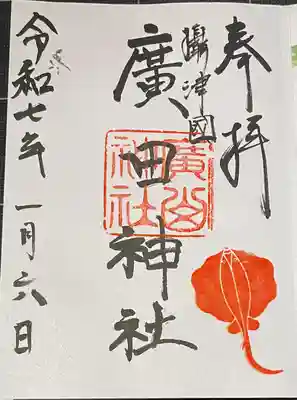 奉拝
攝津國
廣田神社
廣田神社
令和七年一月六日